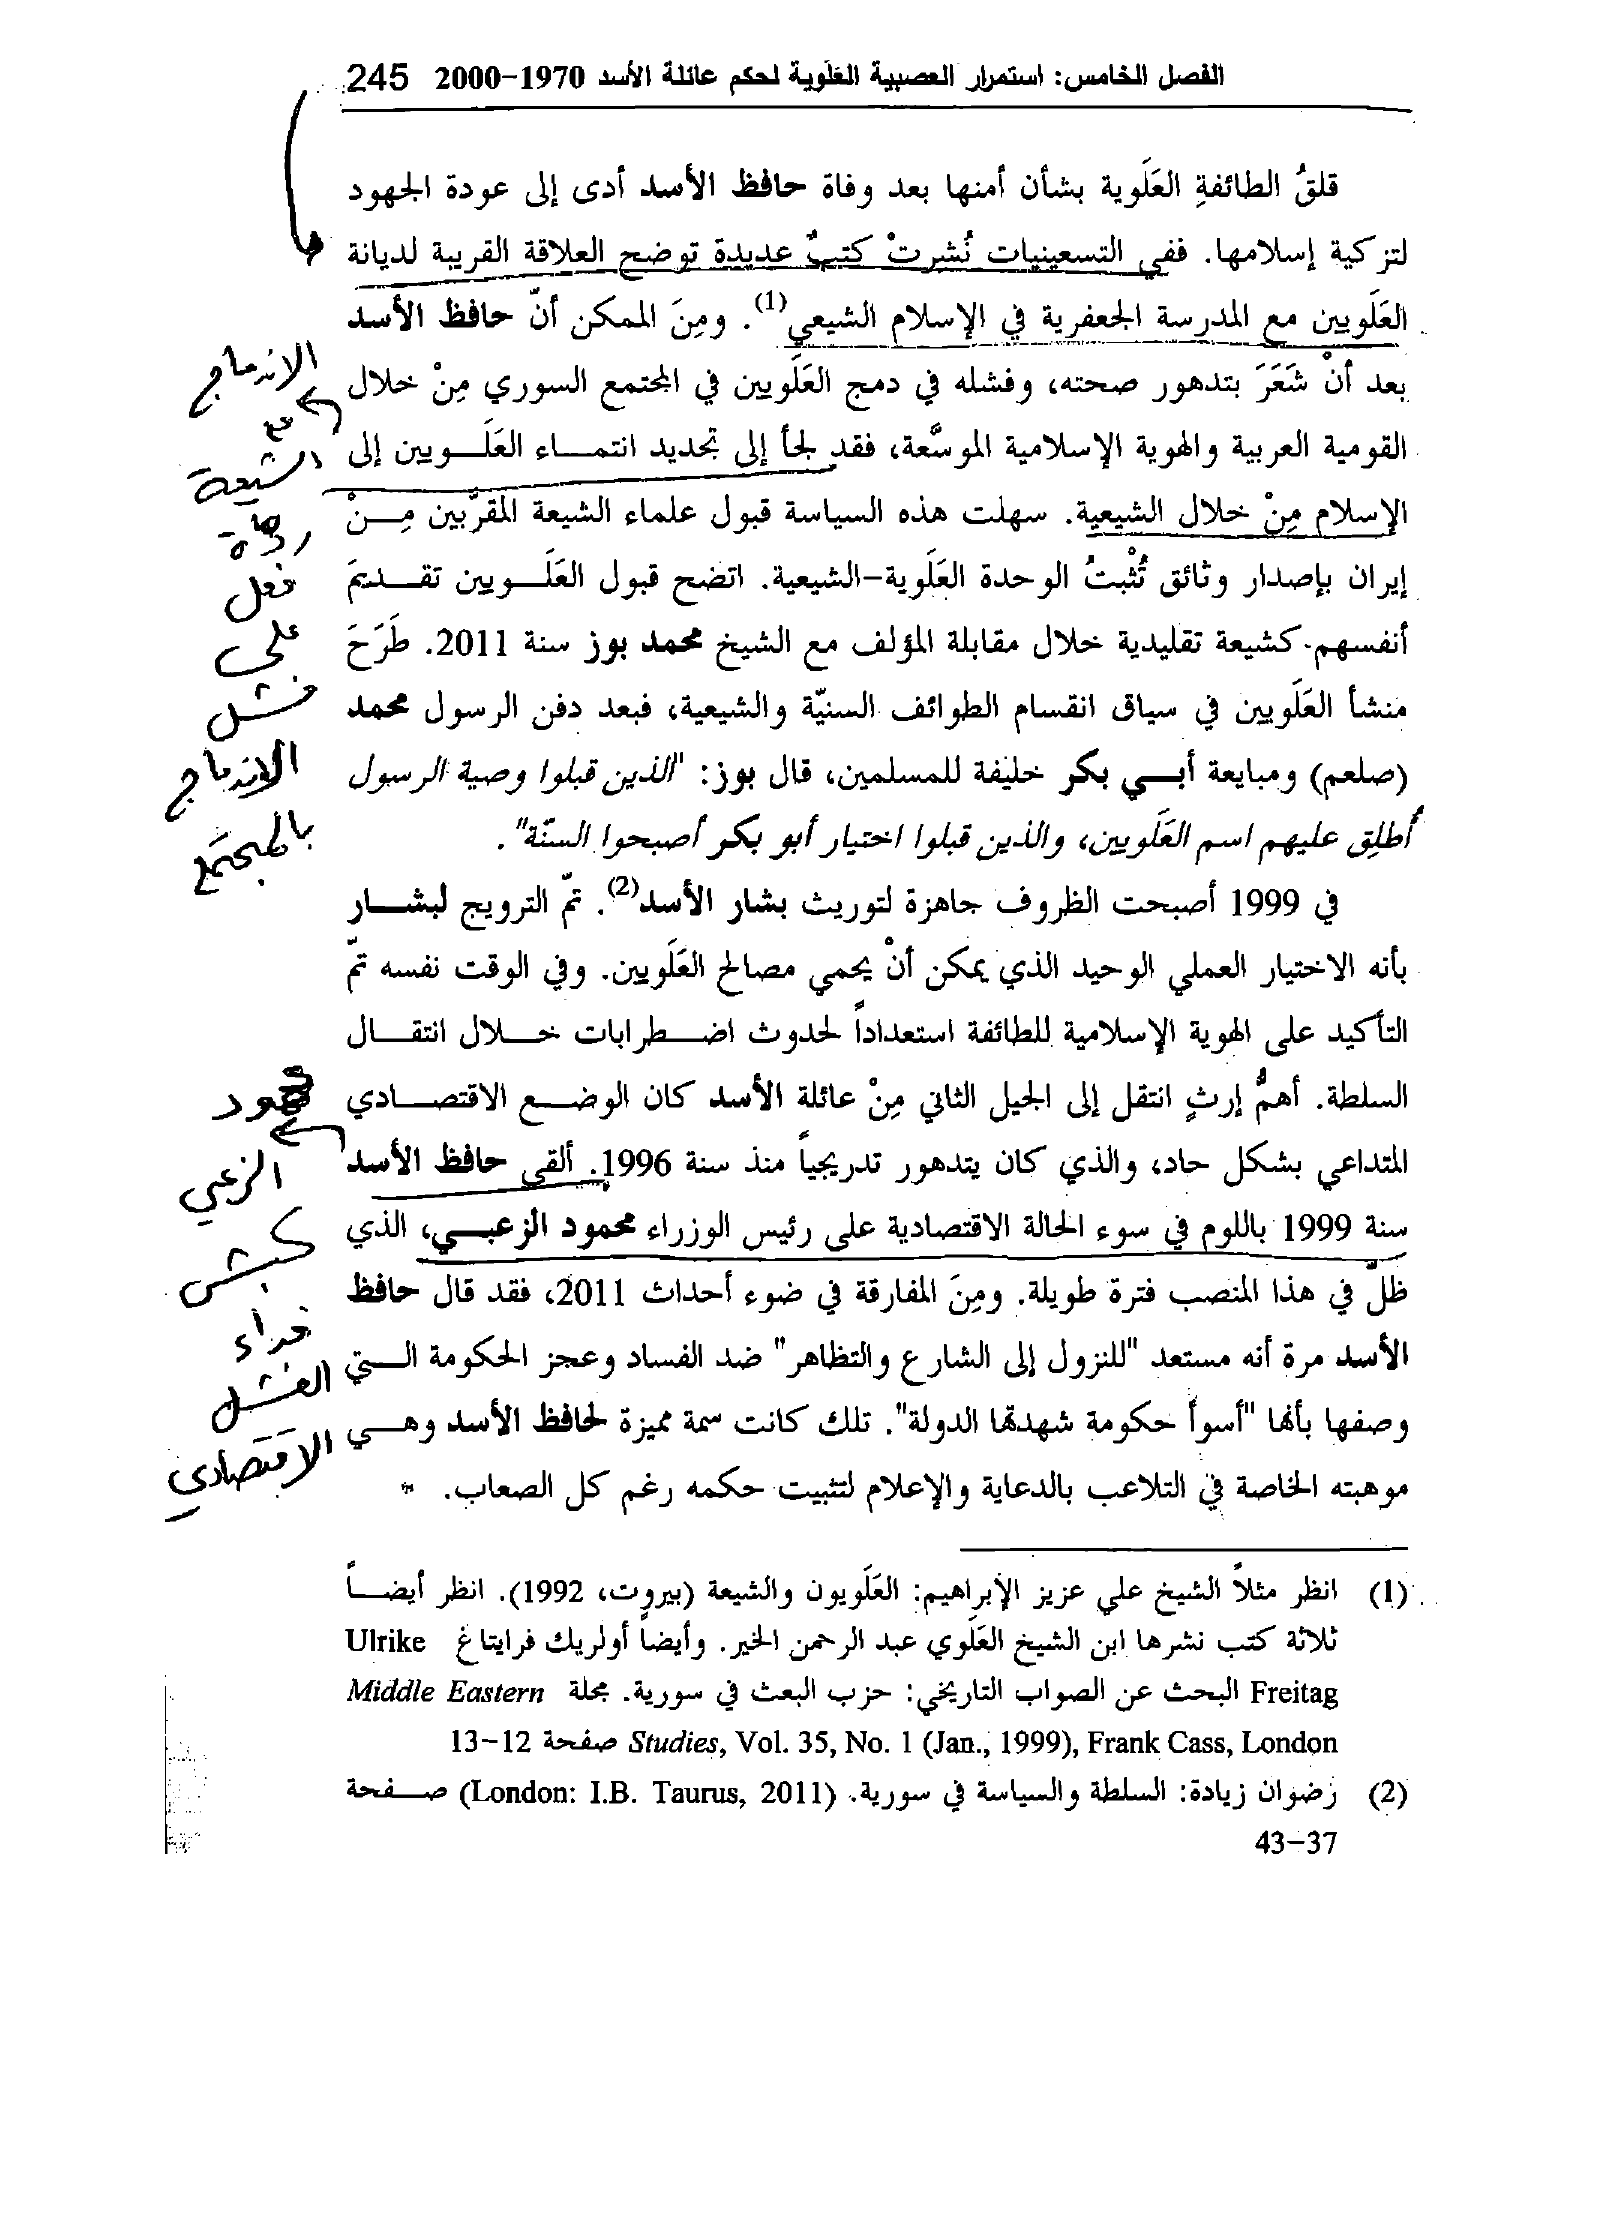 الفصل الخامس: استمرار العصبية العَلَوية لحكم عائلة الأسد 1970–2000 245
قلقُ الطائفةِ العَلَوية بشأن أمنها بعد وفاة حافظ الأسد أدى إلى عودة الجهود
لتزكية إسلامها. ففي التسعينيات نُشرتْ كتبٌ عديدة توضح العلاقة القريبة لديانة
العَلَويين مع المدرسة الجعفرية في الإسلام الشيعي(1). ومِنَ الممكن أنّ حافظ الأسد
بعد أنْ شَعَرَ بتدهور صحته، وفشله في دمج العَلَويين في المجتمع السوري مِنْ خلال
القومية العربية والهوية الإسلامية الموسَّعة، فقد لجأ إلى تجديد انتمـــاء العَلَـــويين إلى
الإسلام مِنْ خلال الشيعية. سهلت هذه السياسة قبول علماء الشيعة المقرَّبين مِـــنْ
إيران بإصدار وثائق تُثْبتُ الوحدة العَلَوية–الشيعية. اتضح قبول العَلَـــويين تقـــديمَ
أنفسهم كشيعة تقليدية خلال مقابلة المؤلف مع الشيخ محمد بوز سنة 2011. طَرَحَ
منشأ العَلَويين في سياق انقسام الطوائف السنيّة والشيعية، فبعد دفن الرسول محمد
(صلعم) ومبايعة أبـــي بكر خليفة للمسلمين، قال بوز: "الذين قبلوا وصية الرسول
أُطلِق عليهم اسم العَلَويين، والذين قبلوا اختيار أبو بكر أصبحوا السنّة".
في 1999 أصبحت الظروف جاهزة لتوريث بشار الأسد(2). تمّ الترويج لبشـــار
بأنه الاختيار العملي الوحيد الذي يمكن أنْ يحمي مصالح العَلَويين. وفي الوقت نفسه تمّ
التأكيد على الهوية الإسلامية للطائفة استعداداً لحدوث اضـــطرابات خـــلال انتقـــال
السلطة. أهمُّ إرثٍ انتقل إلى الجيل الثاني مِنْ عائلة الأسد كان الوضـــع الاقتصـــادي
المتداعي بشكل حاد، والذي كان يتدهور تدريجياً منذ سنة 1996. ألقى حافظ الأسد
سنة 1999 باللوم في سوء الحالة الاقتصادية على رئيس الوزراء محمود الزعبـــي، الذي
ظلّ في هذا المنصب فترة طويلة. ومِنَ المفارقة في ضوء أحداث 2011، فقد قال حافظ
الأسد مرة أنه مستعد "للنزول إلى الشارع والتظاهر" ضد الفساد وعجز الحكومة الـــتي
وصفها بأنها "أسوأ حكومة شهدتها الدولة". تلك كانت سمة مميزة لحافظ الأسد وهـــي
موهبته الخاصة في التلاعب بالدعاية والإعلام لتثبيت حكمه رغم كل الصعاب. *
الاندماج
مع
الشيعة
ردة
فعل
على
فشل
الاندماج
بالمجتمع
محمود
الزعبي
كبش
فداء
الفشل
الاقتصادي
(1) انظر مثلاً الشيخ علي عزيز الإبراهيم: العَلَويون والشيعة (بيروت، 1992). انظر أيضـــاً
ثلاثة كتب نشرها ابن الشيخ العَلَوي عبد الرحمن الخير. وأيضاً أولريك فرايتاغ Ulrike
Freitag البحث عن الصواب التاريخي: حزب البعث في سورية. مجلة Middle Eastern
Studies, Vol. 35, No. 1 (Jan., 1999), Frank Cass, London صفحة 12–13
(2) رضوان زيادة: السلطة والسياسة في سورية. (London: I.B. Taurus, 2011) صـــفحة
37–43